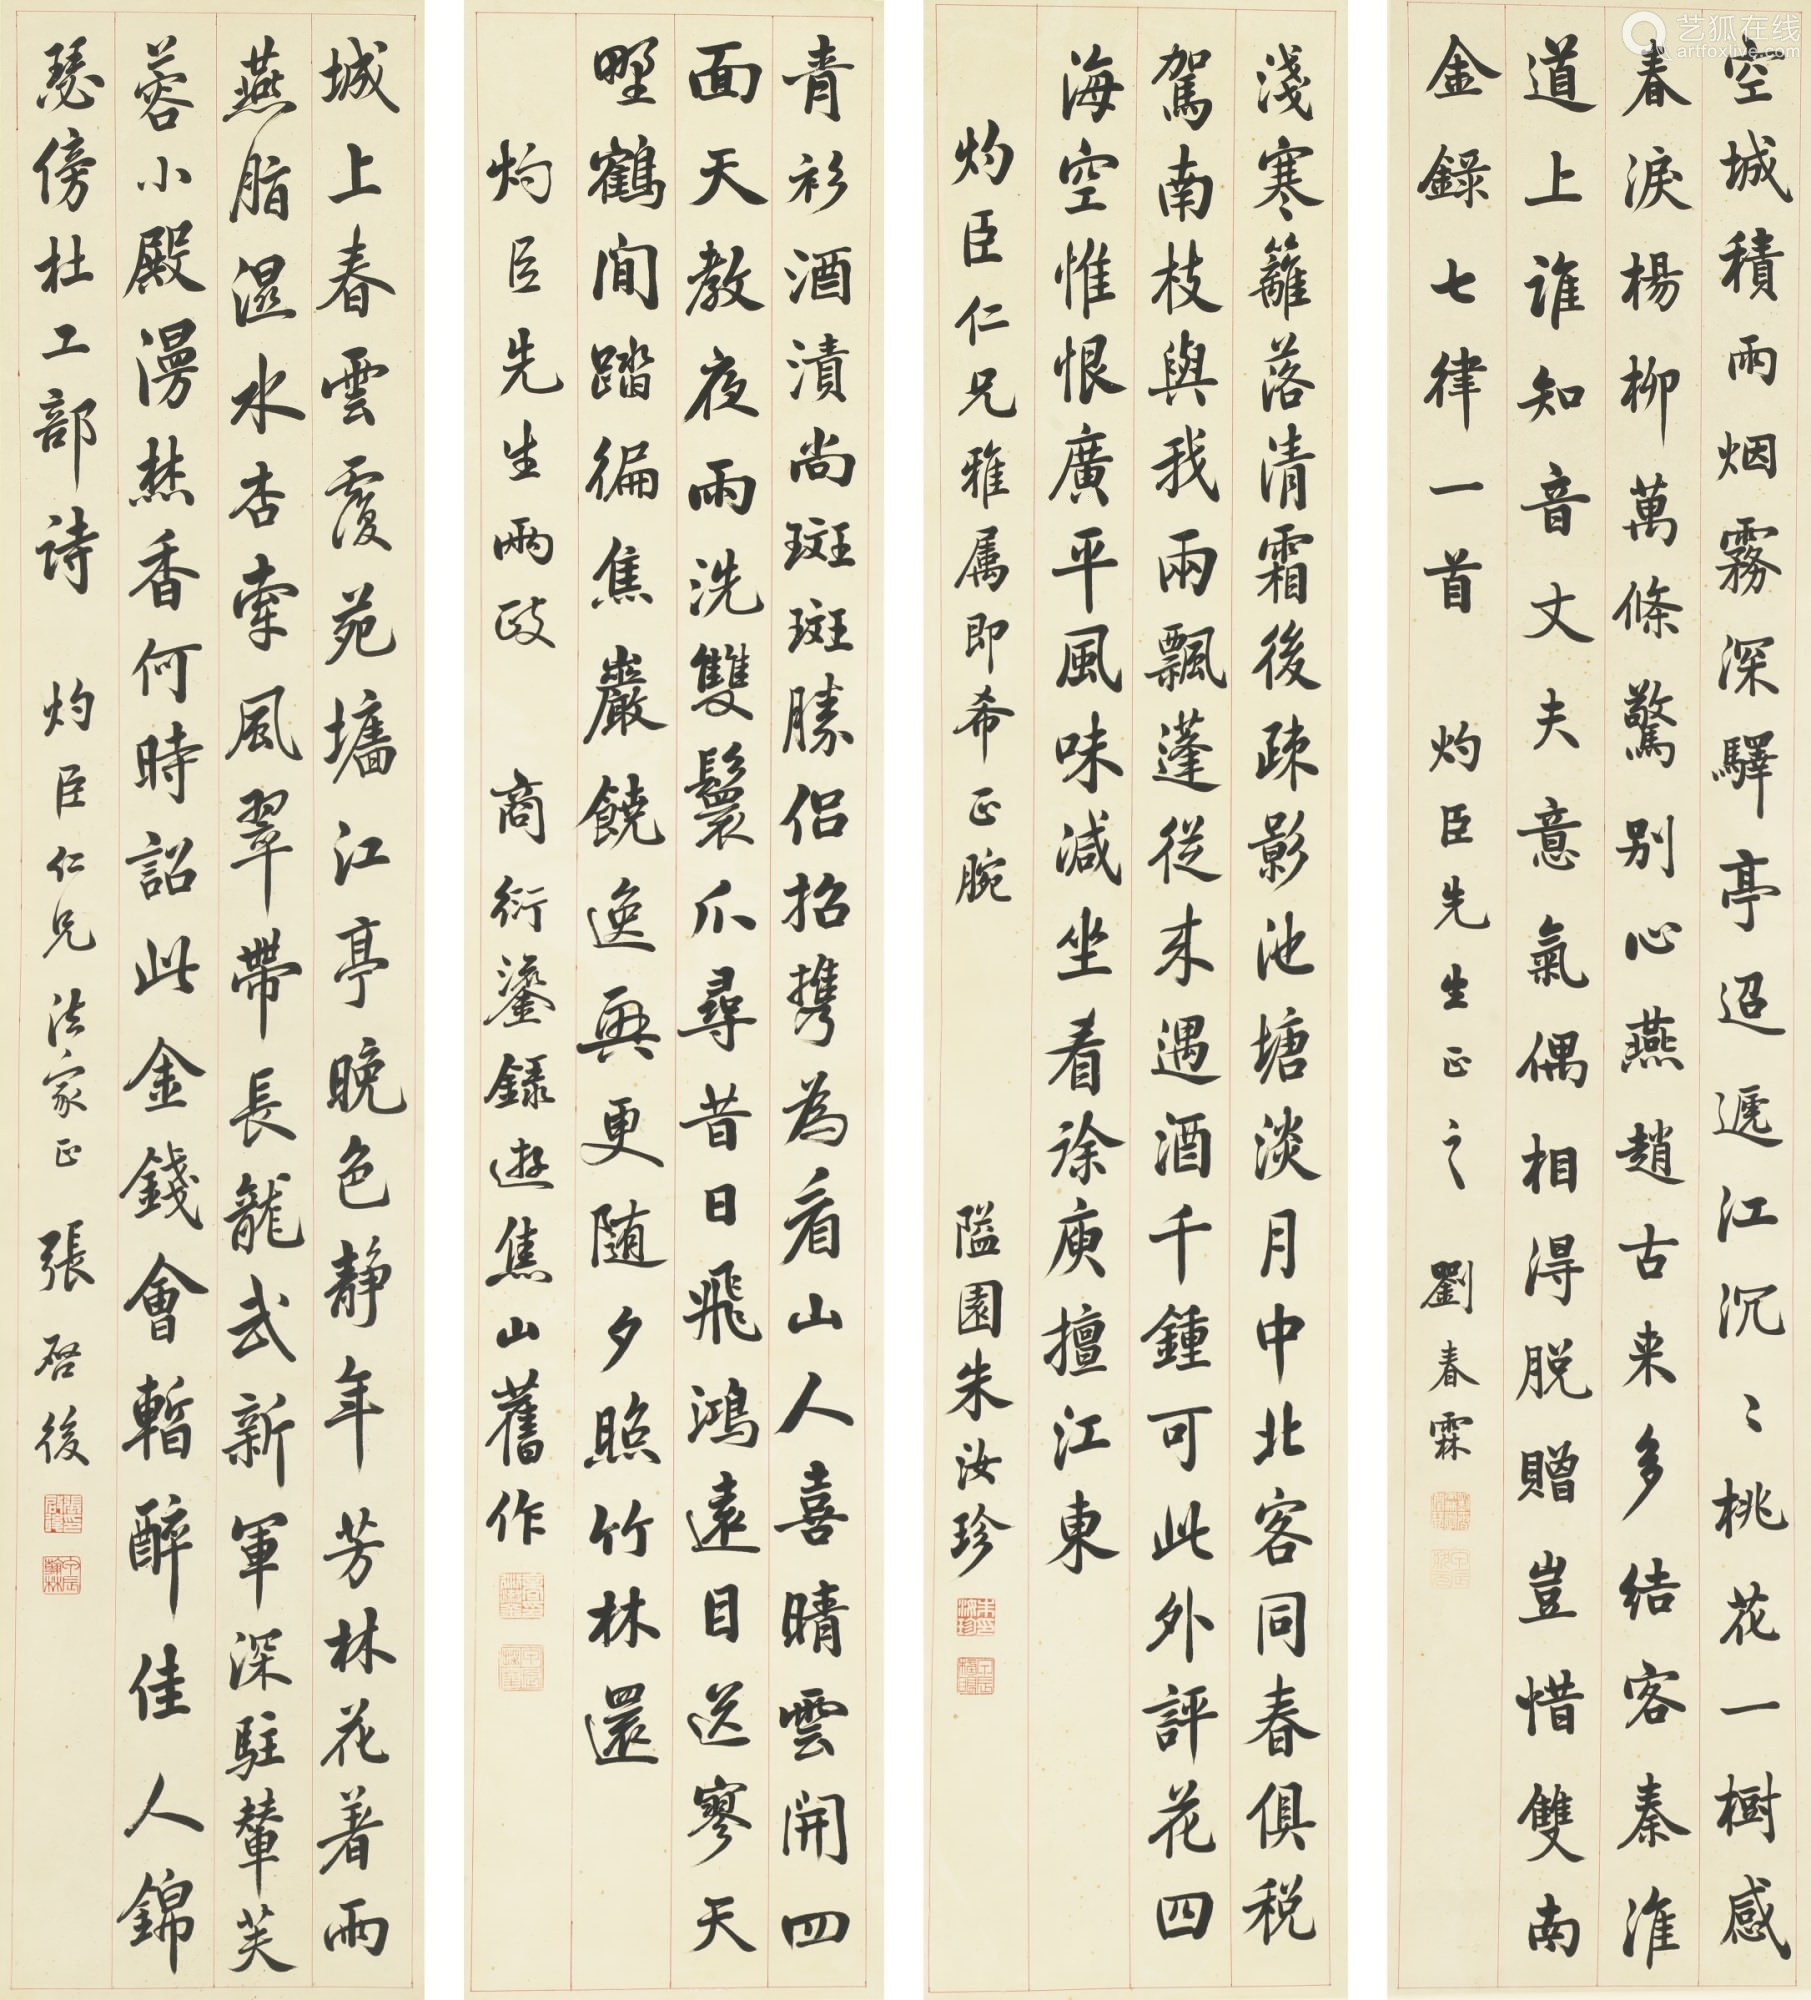 空城積雨烟霧深驛亭迢遞江沉〻桃花一樹感
春淚楊柳萬條驚别心燕趙古来多結客秦淮
道上誰知音丈夫意氣偶相得脱贈豈惜雙南
金錄七律一首 灼臣先生正之 劉春霖
淺寒籬落清霜後疎影池塘淡月中北客同春俱税
駕南枝與我兩飄蓬從来遇酒千鍾可此外評花四
海空惟恨廣平風味減坐看徐庾擅江東
灼臣仁兄雅属即希正腕 隘園朱汝珍
青衫酒漬尚斑斑勝侣招攜為看山人喜晴雲開四
面天教夜雨洗雙鬟爪尋昔日飛鴻遠目送寥天
野鶴閒踏徧焦巖饒逸興更随夕照竹林還
灼臣先生兩政 商衍鎏錄遊焦山舊作
城上春雲覆苑墻江亭晚色靜年芳林花著雨
燕脂濕水杏牽風翠帶長龍武新軍深駐輦芙
蓉小殿漫焚香何時詔此金錢會暫醉佳人錦
瑟傍杜工部詩 灼臣仁兄法家正 張啓後
艺狐在线
artfoxlive.com